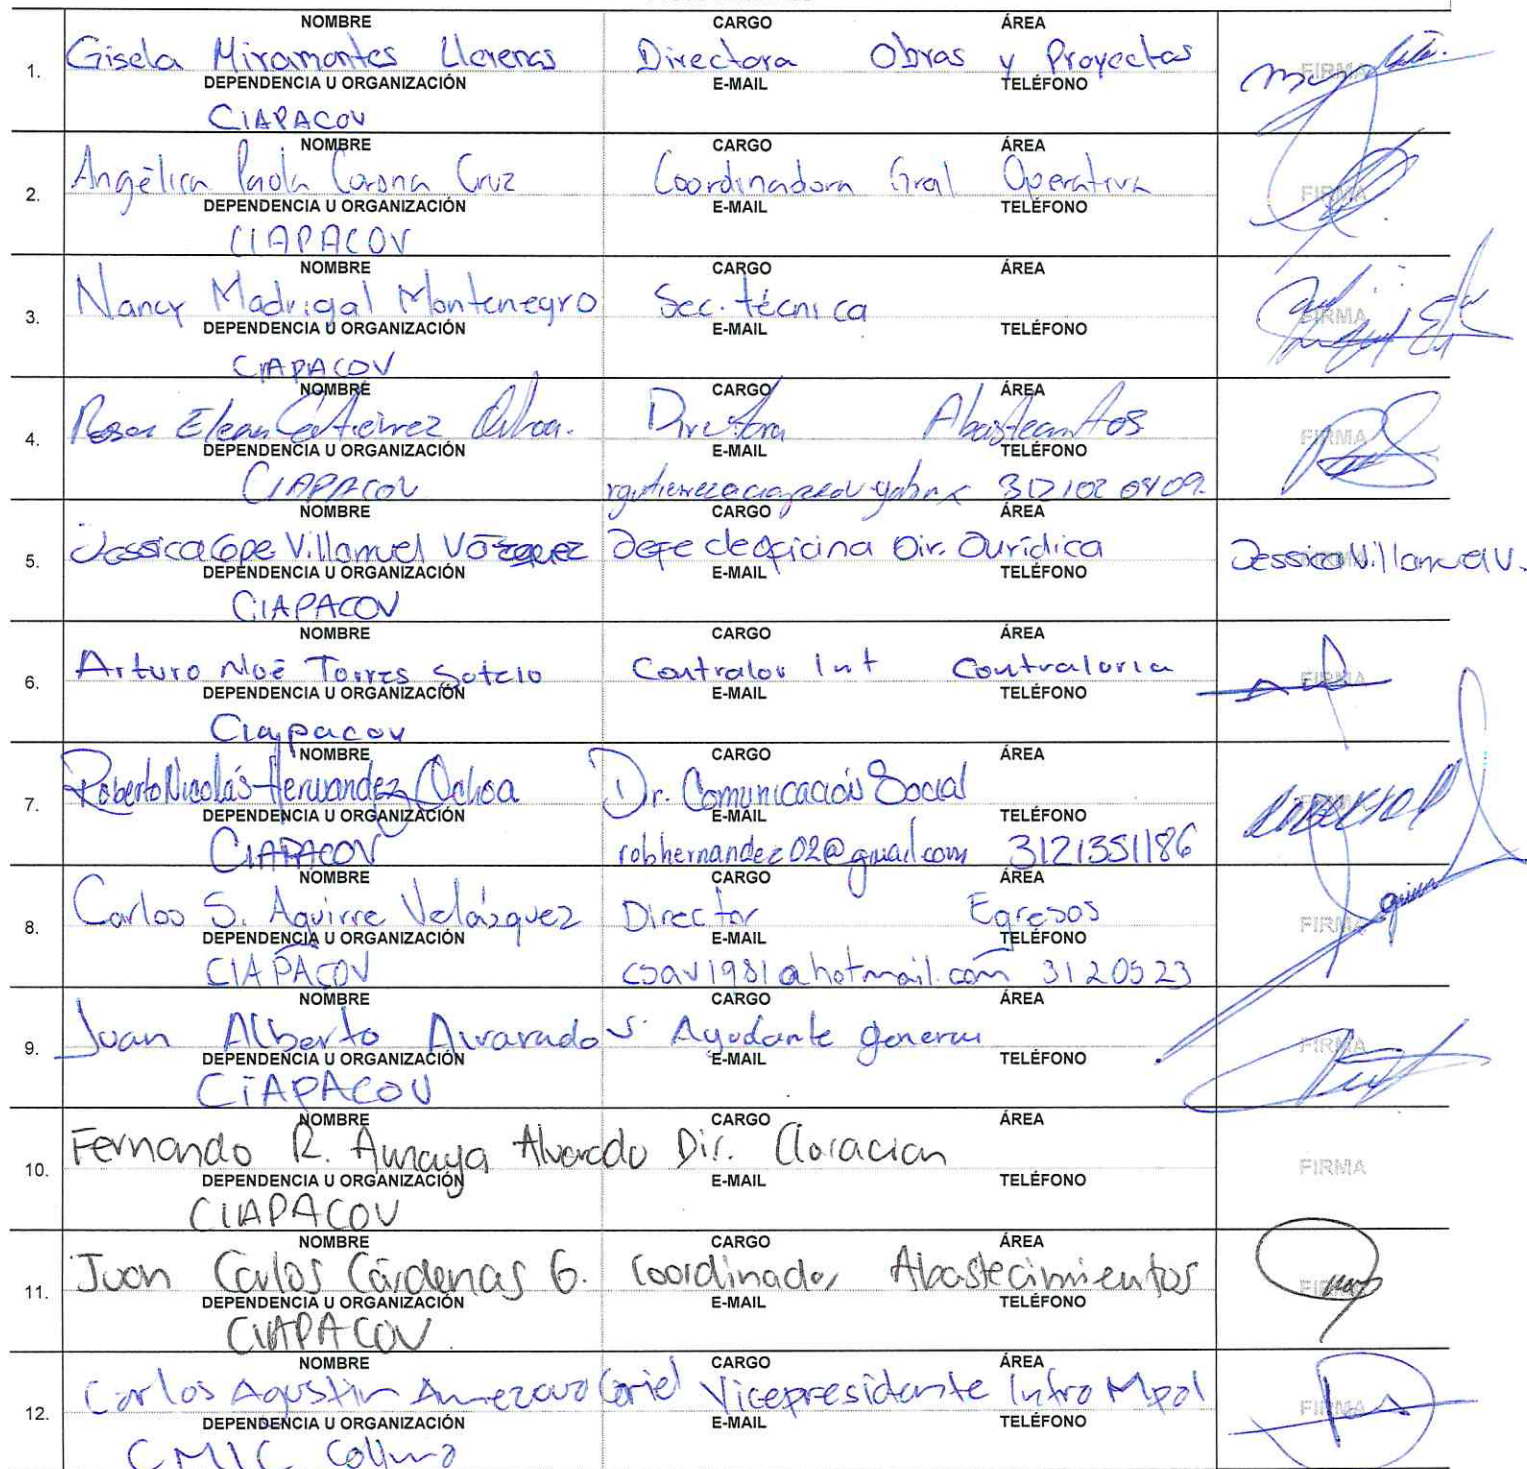 NOMBRE CARGO ÁREA
1. Gisela Miramontes Llerenas Directora Obras y Proyectos FIRMA
DEPENDENCIA U ORGANIZACIÓN E-MAIL TELÉFONO
CIAPACOV
NOMBRE CARGO ÁREA
2. Angélica Paola Corona Cruz Coordinadora Gral Operativa FIRMA
DEPENDENCIA U ORGANIZACIÓN E-MAIL TELÉFONO
CIAPACOV
NOMBRE CARGO ÁREA
3. Nancy Madrigal Montenegro Sec. técnica FIRMA
DEPENDENCIA U ORGANIZACIÓN E-MAIL TELÉFONO
CIAPACOV
NOMBRE CARGO ÁREA
4. Rosa Elena Gutierrez Ochoa. Directora FIRMA
DEPENDENCIA U ORGANIZACIÓN E-MAIL TELÉFONO
CIAPACOV 312 102 0409.
NOMBRE CARGO ÁREA
5. Jessica Villarruel Vázquez Jefe de oficina Dir. Jurídica Jessica Villarruel V.
DEPENDENCIA U ORGANIZACIÓN E-MAIL TELÉFONO
CIAPACOV
NOMBRE CARGO ÁREA
6. Arturo Noé Torres Sotelo Contralor Int Contraloria FIRMA
DEPENDENCIA U ORGANIZACIÓN E-MAIL TELÉFONO
Ciapacov
NOMBRE CARGO ÁREA
7. Roberto Nicolás Hernandez Ochoa Dr. Comunicación Social
DEPENDENCIA U ORGANIZACIÓN E-MAIL TELÉFONO
CIAPACOV robhernandez02@gmail.com 3121351186
NOMBRE CARGO ÁREA
8. Carlos S. Aguirre Velázquez Director Egresos FIRMA
DEPENDENCIA U ORGANIZACIÓN E-MAIL TELÉFONO
CIAPACOV csav1981@hotmail.com 3120523
NOMBRE CARGO ÁREA
9. Juan Alberto Alvarado S. Ayudante general FIRMA
DEPENDENCIA U ORGANIZACIÓN E-MAIL TELÉFONO
CIAPACOV
NOMBRE CARGO ÁREA
10. Fernando R. Amaya Alvarado Dir. Cloracion FIRMA
DEPENDENCIA U ORGANIZACIÓN E-MAIL TELÉFONO
CIAPACOV
NOMBRE CARGO ÁREA
11. Juan Carlos Cárdenas G. Coordinador Abastecimientos FIRMA
DEPENDENCIA U ORGANIZACIÓN E-MAIL TELÉFONO
CIAPACOV
NOMBRE CARGO ÁREA
12. Carlos Agustin Amezcua Vicepresidente Infra Mpal FIRMA
DEPENDENCIA U ORGANIZACIÓN E-MAIL TELÉFONO
CMIC Colima